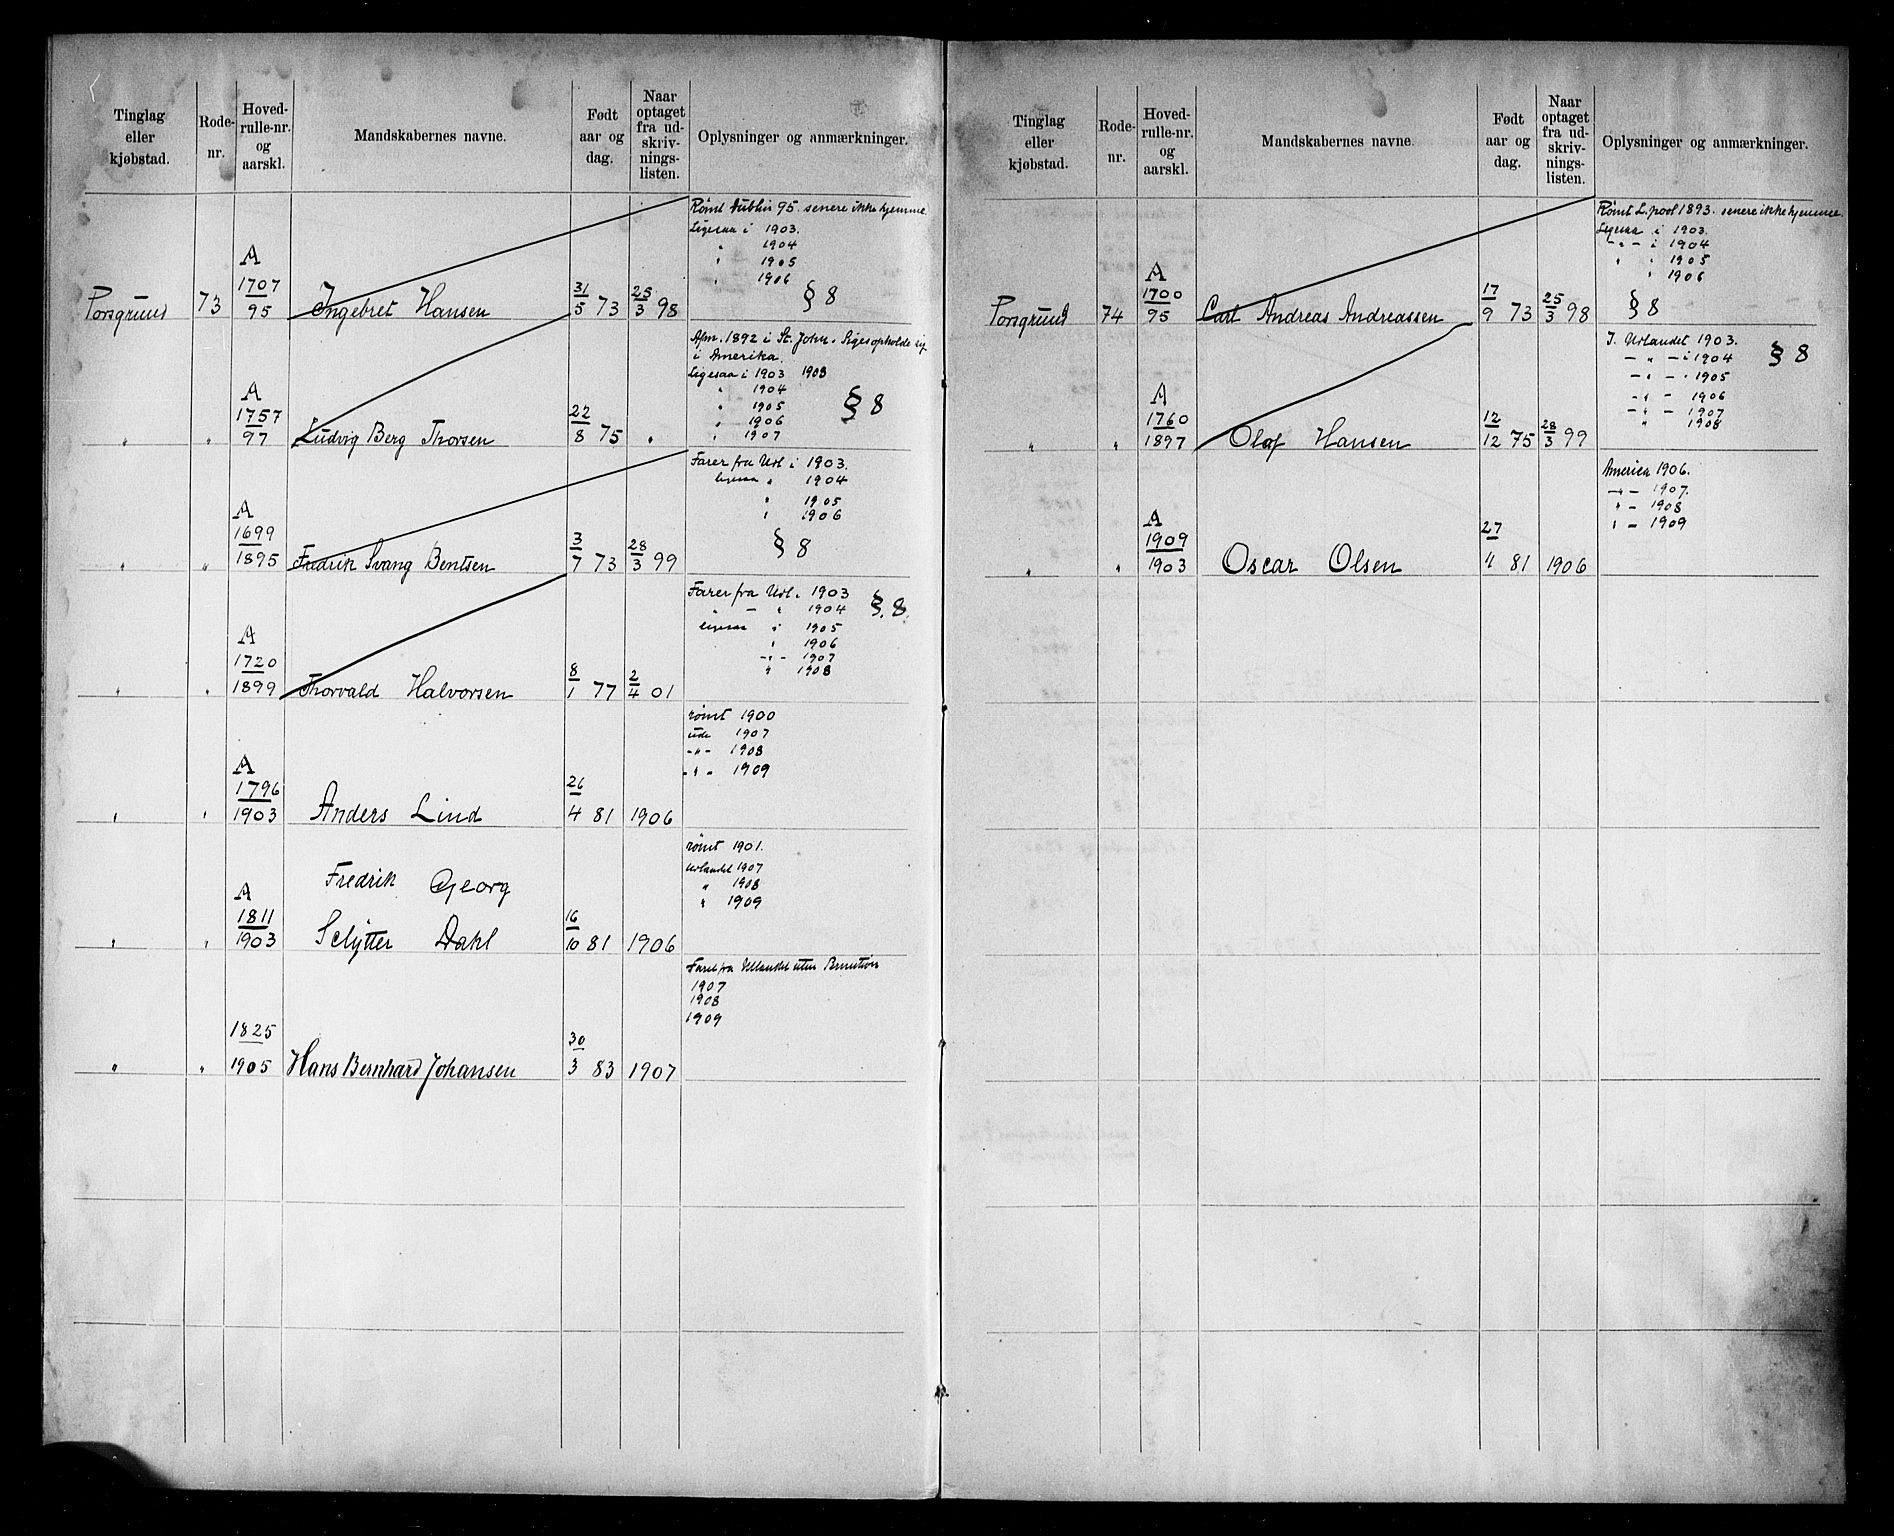 Tinglag eller kjøbstad. Rode-nr. Hoved-rulle-nr. og aarskl. Mandskabernes navne. Født aar og dag. Naar optaget fra ud-skriv-nings-listen. Oplysninger og anmærkninger.
Rømt Dublin 95. senere ikke hjemme
Ligesaa i 1903.
" 1904
" 1905
" 1906
§ 8
Porsgrund 73 A 1707/95 Ingebret Hansen 31/5 73 25/3 98
Afm. 1892 i St. John.
i Amerika.
Ligesaa i 1903 1903
" 1904
" 1905
" 1906
" 1907
§ 8
" " A 1757/97 Ludvig Berg Thorsen 22/8 75 "
Farer fra Udl i 1903.
ligesaa " 1904
" 1905
" 1906
§ 8
" " A 1699/1895 Fredrik Svang Bentsen 3/7 73 28/3 99
Farer fra Udl. 1903
" - " 1904
§. 8.
ligesaa i 1905
" 1906
-"- 1907
" 1908
" " A 1720/1899 Thorvald Halvorsen 8/1 77 2/4 01
rømt 1900
ude 1907
-"- 1908
-"- 1909
" " A 1796/1903 Anders Lind 26/4 81 1906
rømt 1901.
Udlandet 1907
" 1908
" 1909
Fredrik Georg
" " A 1811/1903 Schytter Dahl 16/10 81 1906
Faret fra Udlandet uten
1907
1908
1909
" " 1825/1905 Hans Bernhard Johansen 30/3 83 1907
Tinglag eller kjøbstad. Rode-nr. Hoved-rulle-nr. og aarskl. Mandskabernes navne. Født aar og dag. Naar optaget fra ud-skriv-nings-listen. Oplysninger og anmærkninger.
Rømt L.pool 1893. senere ikke hjemme.
Ligesaa i 1903.
-"- i 1904
" " 1905
" 1906
§ 8
Porsgrund 74 A 1700/95 Carl Andreas Andreassen 17/9 73 25/3 98
I Udlandet 1903.
-"- i 1904
§ 8
-"- 1905
-"- 1906
-"- 1907
" 1908
" " A 1760/1897 Olaf Hansen 12/12 75 28/3 99
America 1906.
-"- 1907.
"- 1908
"- 1909
" " A 1909/1903 Oscar Olsen 27/4 81 1906